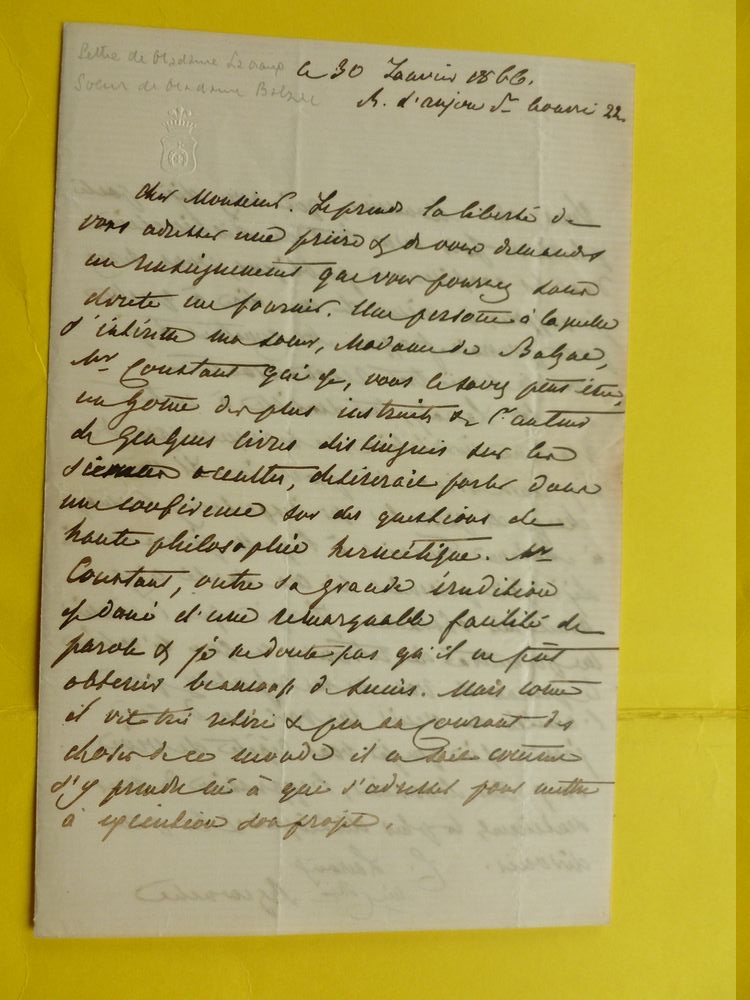 Lettre de Madame Lacroix
Soeur de Madame Balzac
le 30 Janvier 1866.
R. d'anjou St honoré 22.
Cher Monsieur. Je prends la liberté de
vous adresser une prière & de vous demander
un renseignement que vous pourrez sans
doute me fournir. Une personne à laquelle
s'intéresse ma soeur, Madame de Balzac,
Mr Constant qui est, vous le savez peut être,
un homme des plus instruits & l'auteur
de quelques livres distingués sur les
sciences occultes, désirerait parler dans
une conférence sur des questions de
haute philosophie hermétique. Mr
Constant, outre sa grande érudition
est doué d'une remarquable facilité de
parole & je ne doute pas qu'il ne pût
obtenir beaucoup de succès. Mais comme
il vit très retiré & peu au courant des
choses de ce monde il ne sait comment
s'y prendre ni à qui s'adresser pour mettre
à exécution son projet.